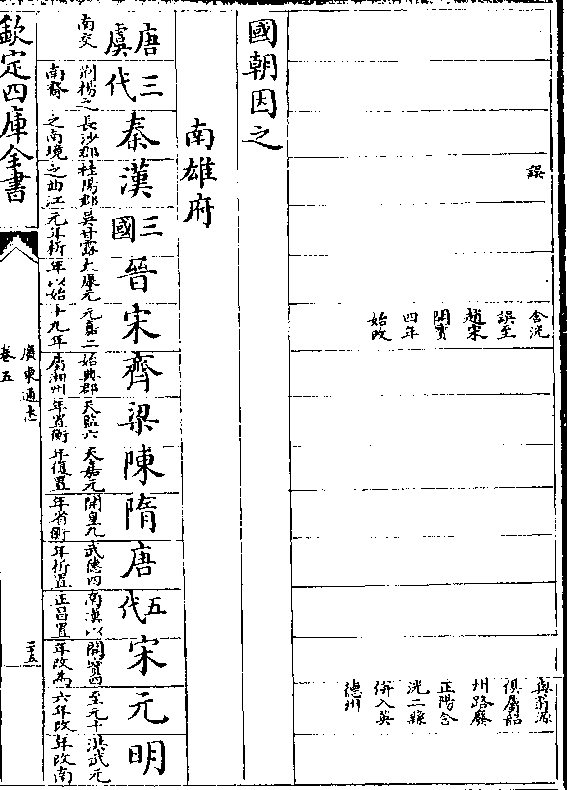 誤
含洸
誤至
趙宋
開寶
四年
始改
與翁源
俱屬韶
州路廢
正陽含
洸二縣
併入英
德州
國朝因之
南雄府
唐虞
三代
秦
漢
三國
晉
宋
齊
梁
陳
隋
唐
五代
宋
元
明
南交
荆揚之
南裔
長沙郡
之南境
桂陽郡
之曲江
吳甘露
元年析
太康元
年以始
元嘉二
十九年
始興郡
屬湘州
天監六
年置衡
天嘉元
年復置
開皇九
年省衡
武德四
年析置
南漢以
正昌置
開寶四
年改為
至元十
六年改
洪武元
年改南
欽定四庫全書
廣東通志
卷五